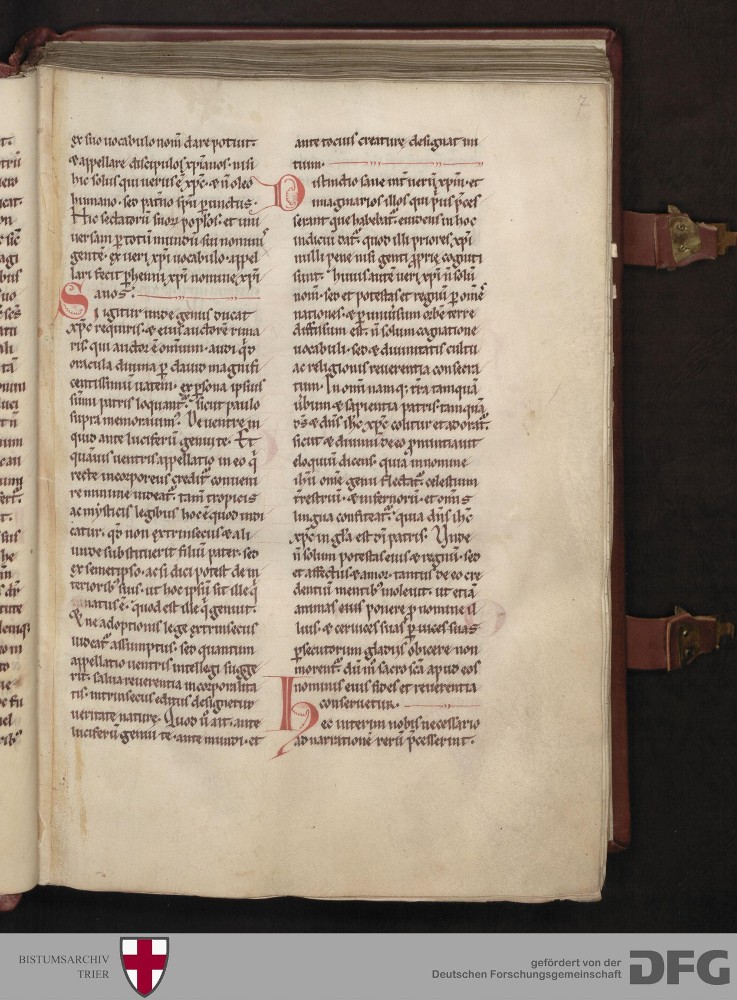 7
ex suo uocabulo nom̄ dare potuit.
& appellare discipulos xp̄ianos. nisi
hic solus qui uerus ē xp̄c. & ñ oleo
humano. sed pat̄no sp̄u p̱unctus.
Hic sectatorū suoꝝ popl̄os. et uni
uersam p̱ totū mundū sui nominis
gentē. ex ueri xp̄i uocabulo. appel
lari fecit p̱henni xp̄i nomine xp̄i
anos.
Si igitur unde genus ducat
xp̄c requiris. & eius auctorē rima
ris qui auctor ē omnium. audi qđ
oracula diuina p̱ dauid magnifi
centissimū uatem. ex p̱sona ipsius
sūmi patris loquant̄. sicut paulo
supra memorauim᷒. De uentre in
quid ante luciferū genui te. Et
quāuis uentris appellatio in eo q̄
recte incorporeus credit᷒ conueni
re minime uideat᷒. tam̄ tropicis
ac mysticis legibus hoc ē quod indi
catur. qđ non extrinsecus & ali
unde substituerit filiū pater. sed
ex semetipso. ac si dici potest de in
terioribꝫ suis. ut hoc ipsū sit ille q̄
natus ē. quod est ille q̄ genuit.
& ne adoptionis lege extrinsecus
uideat᷒ assumptus. sed quantum
appellatio uentris intellegi sugge
rit. salua reuerentia incorporalita
tis. intrinsecus editus designetur
ueritate naturę. Quod ū ait. ante
luciferū genui te. ante mundi. et
ante tocius creaturę designat ini
tium.
Distinctio sane int̄ uerū xp̄m. et
imaginarios illos qui p̄us p̄ces
serant quę habebat᷒. euidens in hoc
indiciū dat᷒. quod illi priores xp̄i
nulli pene nisi genti p̱prię cogniti
sunt. huius autē ueri xp̄i ñ solū
nom̄. sed et potestas et regnū p̱ om̄ēs
nationes. & p̱ uniuersum orbē terrę
diffusum est. ñ solum cognatione
uocabuli. sed & diuinitatis cultu
ac religionis reuerentia consecra
tum. In om̄i namq; t̄ra tamquā
ūbum & sapientia patris. tamquā
& dn̄s ih̄c xp̄c colitur et adorat᷒.
sicut & diuinū de eo p̱nuntiauit
eloquiū dicens. quia in nomine
ih̄u om̄e genu flectat᷒. celestium
t̄restriū. & infernorū. et om̄is
lingua confiteat᷒. quia dn̄s ih̄c
xp̄c in gl̄a est dī patris. Unde
ñ solum potestas eius & regnū. sed
et affectus & amor. tantus de eo cre
dentiū mentibꝫ inoleuit. ut etiā
animas eius ponere p̱ nomine il
lius. & ceruices suas p̱uices suas
p̱secutorum gladiis obicere non
morent᷒. dū m̄ sacrosc̄a apud eos
nominis eius fides et reuerentia
conseruetur.
Hec interim nobis necessario
ad narrationē rerū p̄cesserint.
BISTUMSARCHIV
TRIER
gefördert von der
Deutschen Forschungsgemeinschaft
DFG